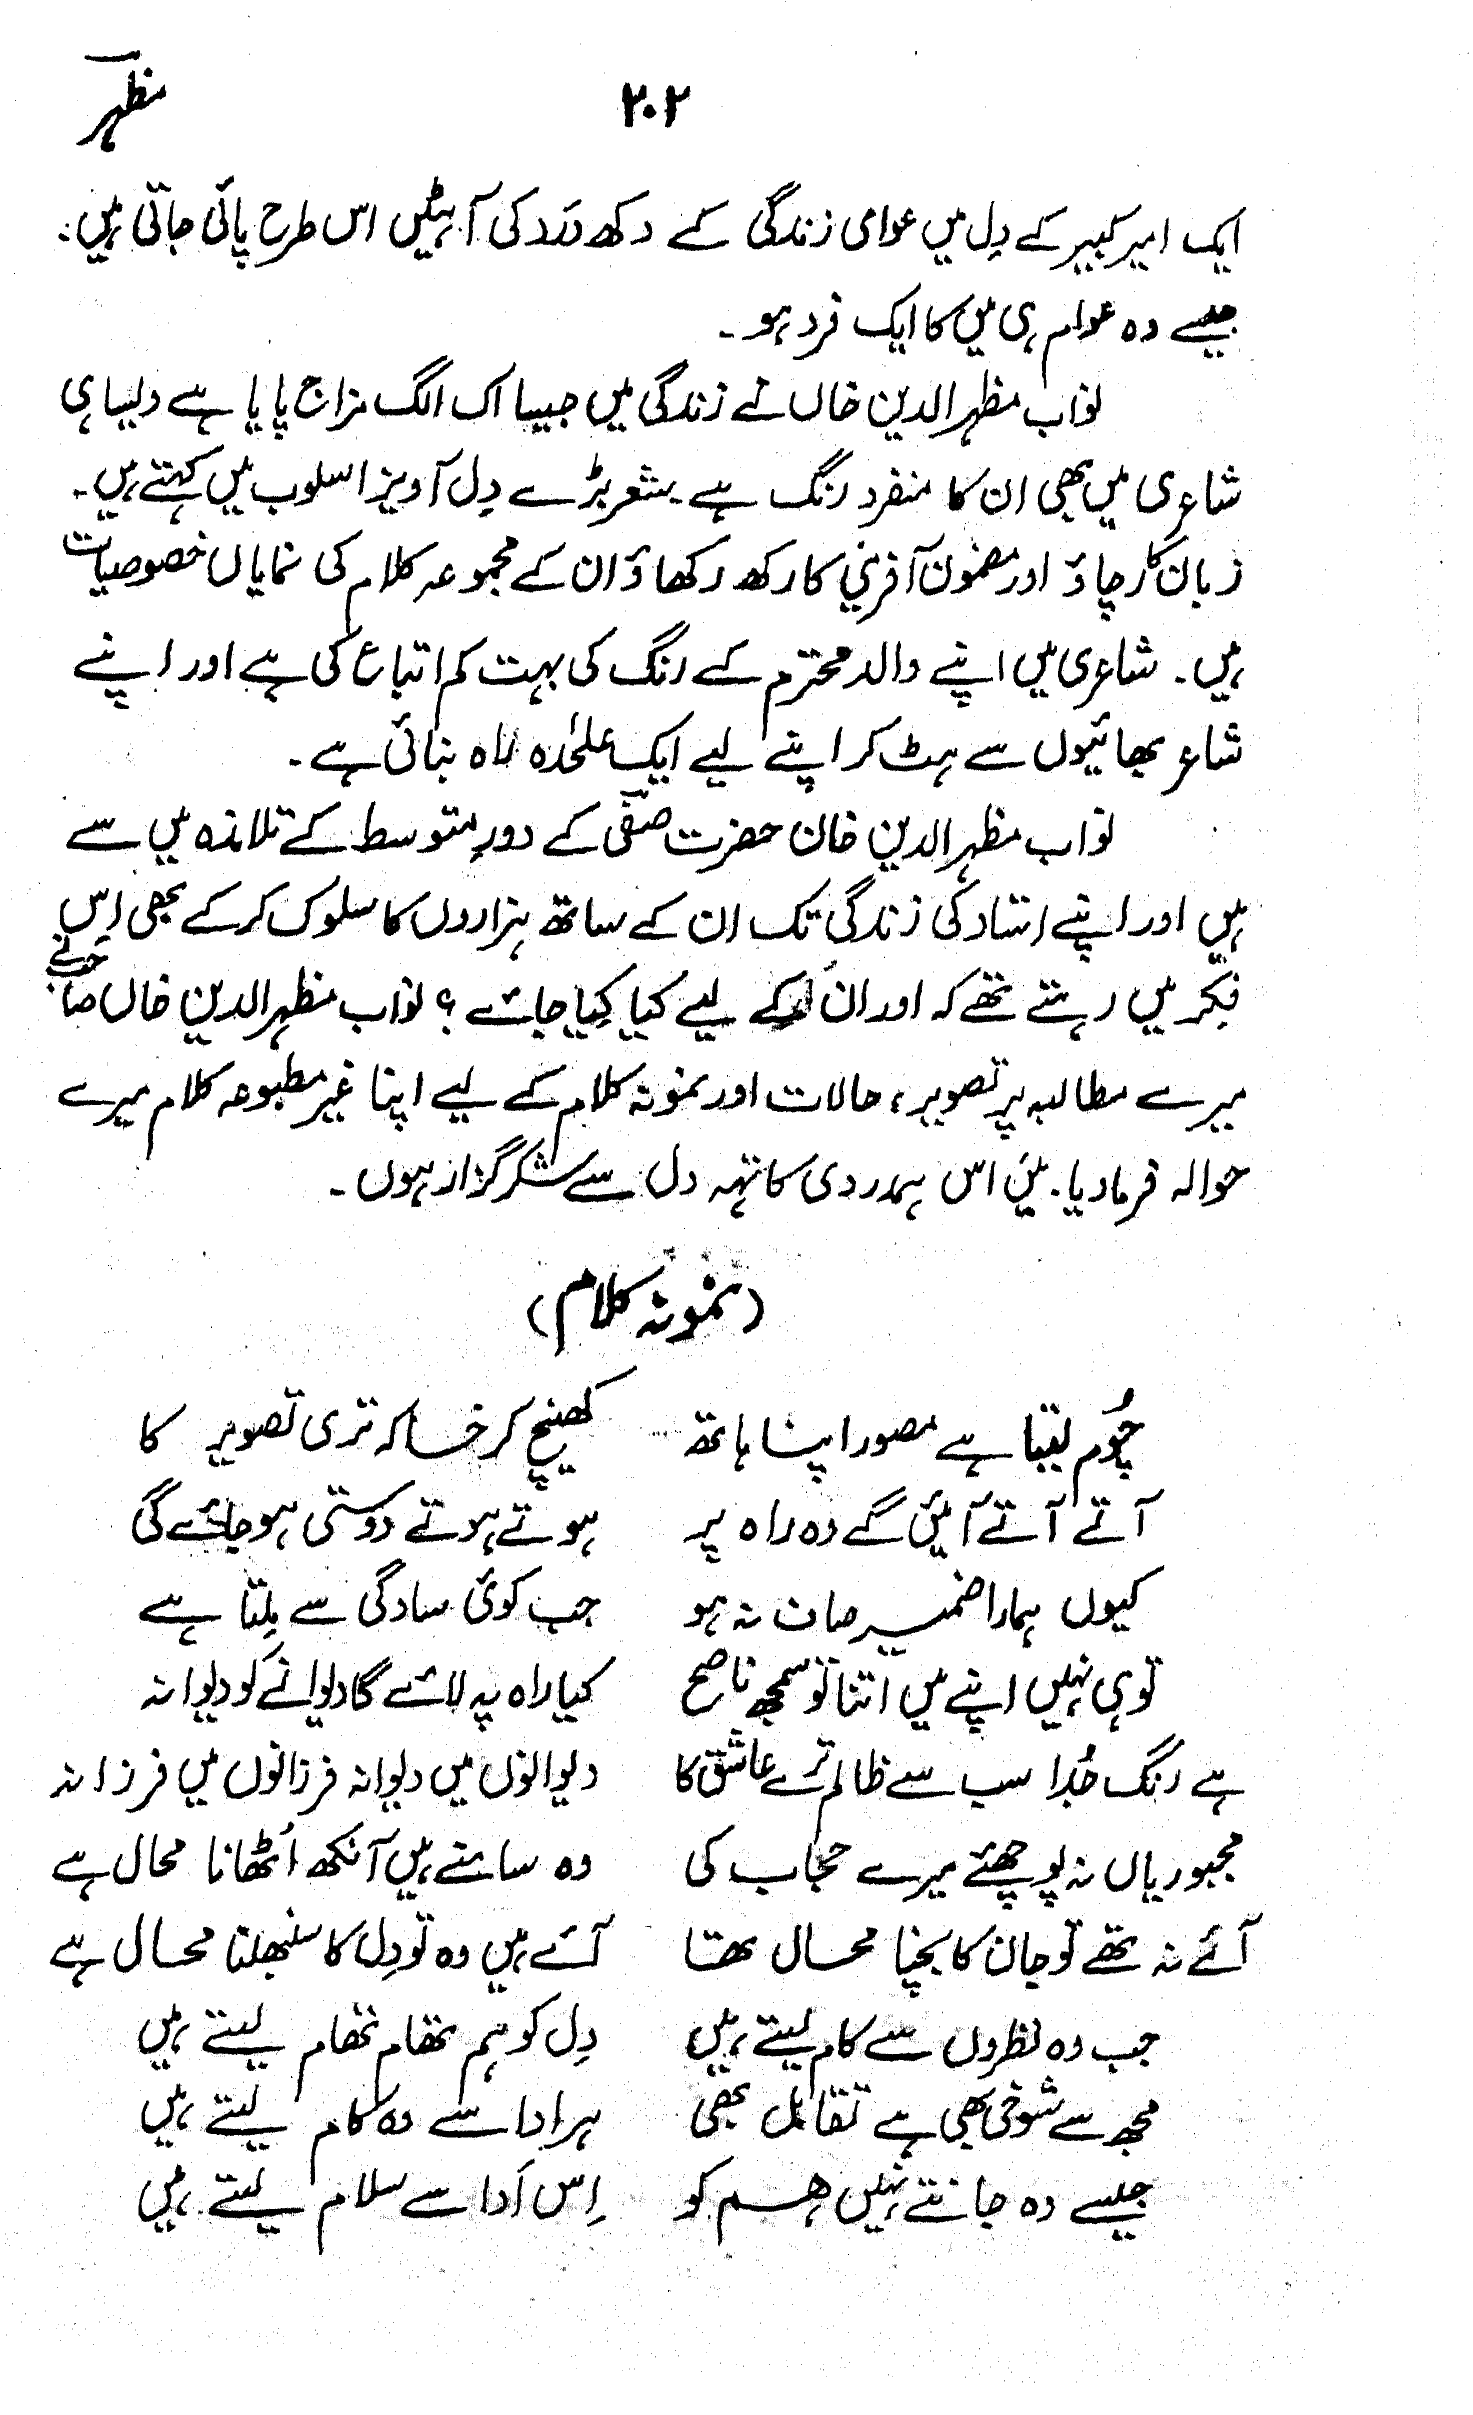 مظہر
۲۰۲
ایک امیر کبیر کے دِل میں عوامی زندگی کے دکھ دَرد کی آہٹیں اس طرح پائی جاتی ہیں۔
جیسے وہ عوام ہی میں کا ایک فرد ہو۔
نواب مظہر الدین خاں نے زندگی میں جیسا اک الگ مزاج پایا ہے ویسا ہی
شاعری میں بھی ان کا منفرد رنگ ہے۔ شعر بڑے دِل آویز اسلوب میں کہتے ہیں۔
زبان کا رچاؤ اور مضمون آفرینی کا رکھ رکھاؤ ان کے مجموعہ کلام کی نمایاں خصوصیات
ہیں۔ شاعری میں اپنے والد محترم کے رنگ کی بہت کم اتباع کی ہے اور اپنے
شاعر بھائیوں سے ہٹ کر اپنے لیے ایک علٰحدہ راہ بنائی ہے۔
نواب مظہر الدین خان حضرت صفی کے دورِ متوسط کے تلامذہ میں سے
ہیں اور اپنے استاد کی زندگی تک ان کے ساتھ ہزاروں کا سلوک کر کے بھی اِس
فکر میں رہتے تھے کہ اور ان کے لیے کیا کِیا جائے ؟ نواب مظہر الدین خاں صاحب نے
میرے مطالبہ پر تصویر، حالات اور نمونہ کلام کے لیے اپنا غیر مطبوعہ کلام میرے
حوالہ فرما دیا۔ میں اس ہمدردی کا تہہ دل سے شکر گزار ہوں۔
(نمونہ کلام)
چُوم لیتا ہے مصور اپنا ہاتھ کھینچ کر خاکہ تری تصویر کا
آتے آتے آئیں گے وہ راہ پر ہوتے ہوتے دوستی ہو جائے گی
کیوں ہمارا ضمیر صاف نہ ہو جب کوئی سادگی سے مِلتا ہے
تو ہی نہیں اپنے میں اتنا تو سمجھ ناصح کیا راہ پہ لائے گا دیوانے کو دیوانہ
ہے رنگ جُدا سب سے ظالم ترے عاشق کا دیوانوں میں دیوانہ فرزانوں میں فرزانہ
مجبوریاں نہ پوچھئے میرے حجاب کی وہ سامنے ہیں آنکھ اُٹھانا محال ہے
آئے نہ تھے تو جان کا بچنا محال تھا آئے ہیں وہ تو دِل کا سنبھلنا محال ہے
جب وہ نظروں سے کام لیتے ہیں دِل کو ہم تھام تھام لیتے ہیں
مجھ سے شوخی بھی ہے تغافل بھی ہر ادا سے وہ کام لیتے ہیں
جیسے وہ جانتے نہیں ہم کو اِس اَدا سے سلام لیتے ہیں